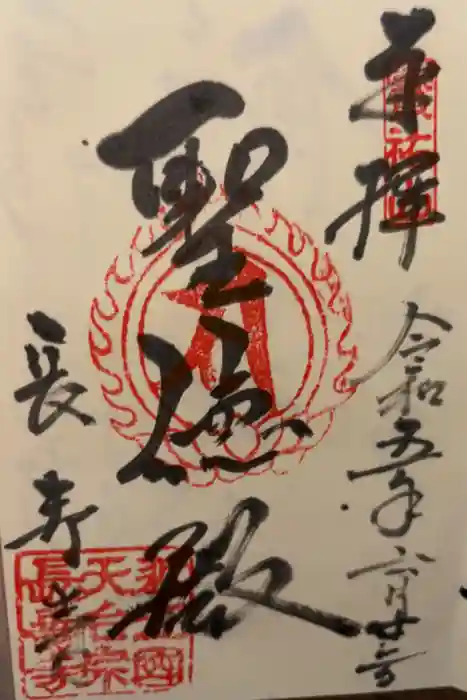 奉拝
令和五年六月廿一日
聖徳殿
長寿寺
天台宗
長寿寺